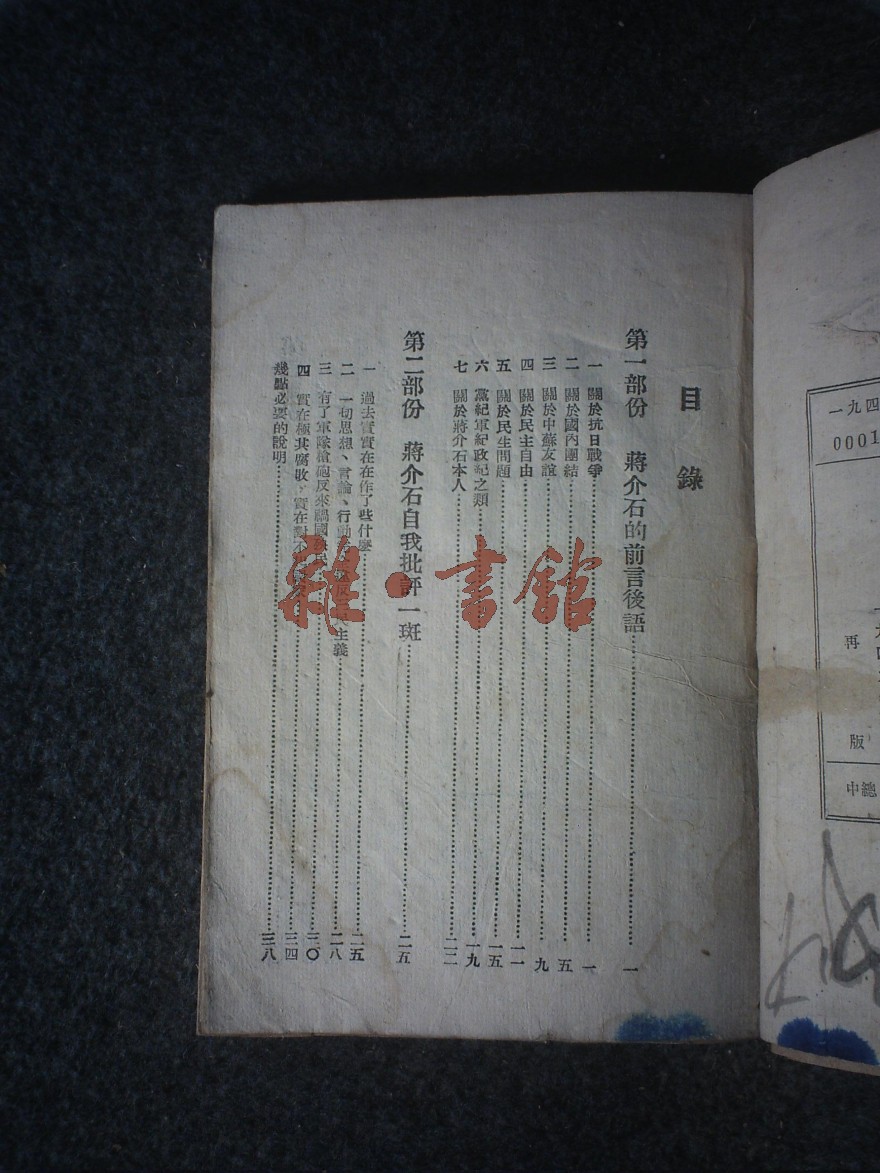 目錄
第一部份 蔣介石的前言後語……一
一 關於抗日戰爭……一
二 關於國內團結……五
三 關於中蘇友誼……九
四 關於民主自由……一一
五 關於民生問題……一五
六 黨紀軍紀政紀之類……一九
七 關於蔣介石本人……二二
第二部份 蔣介石自我批評一斑……二五
一 過去實實在在作了些什麼……二五
二 一切思想、言論、行動 反 主義……二八
三 有了軍隊槍砲反來禍國殃民……三〇
四 實在極其腐敗,實在對不……三四
幾點必要的說明……三八
雜·書館
一九四
0001
再
版
中總